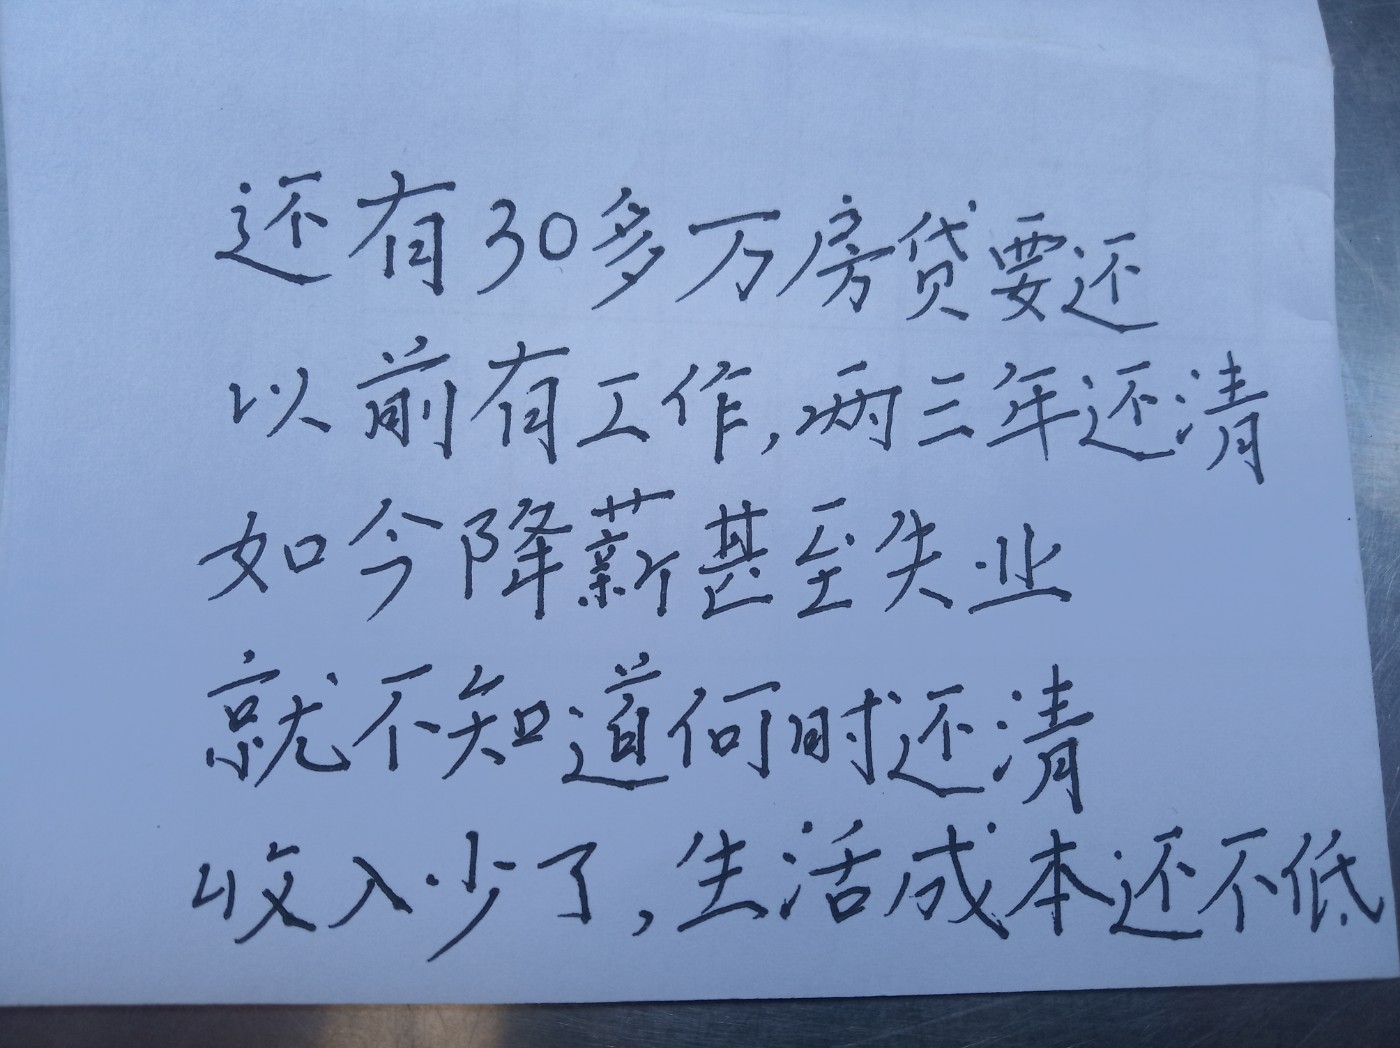 还有30多万房贷要还
以前有工作,两三年还清
如今降薪甚至失业
就不知道何时还清
收入少了,生活成本还不低